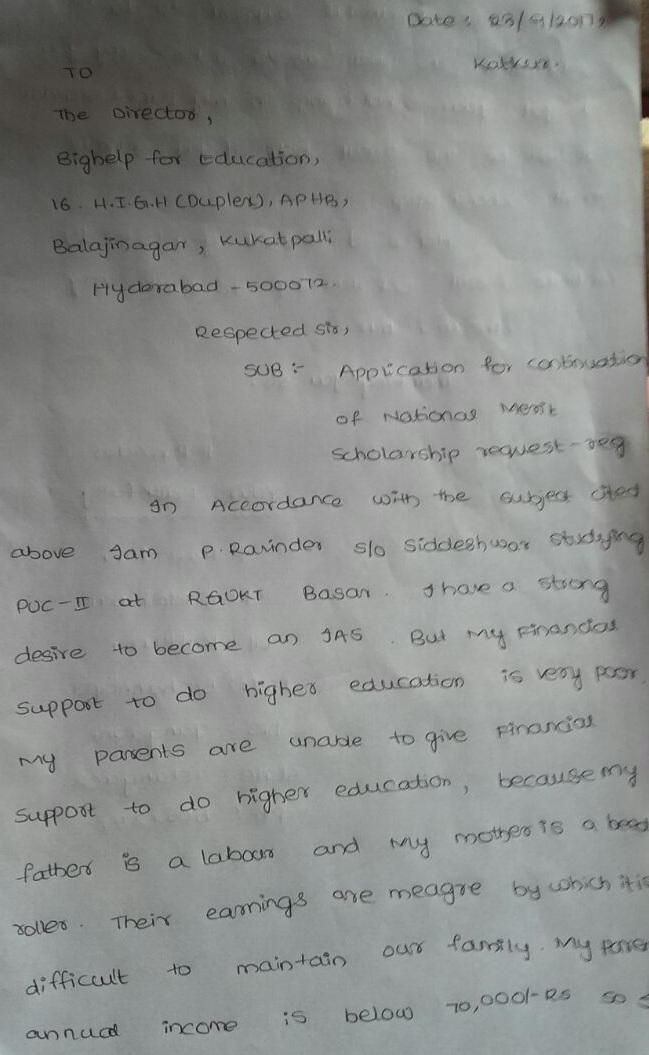 Date: 23/9/2017,
Katkur.
TO
The Director,
Bighelp for Education,
16. H.I.G.H (Duplex), APHB,
Balajinagar, Kukatpalli
Hyderabad - 500072.
Respected sir,
SUB :- Application for continuation
of National Merit
Scholarship request-reg
In Accordance with the subject cited
above Iam P. Ravinder s/o Siddeshwar studying
PUC-II at RGUKT Basar. I have a strong
desire to become an IAS. But My Financial
Support to do higher education is very poor.
My parents are unable to give Financial
Support to do higher education, because my
father is a labour and My mother is a
roller. Their earnings are meagre by which it is
difficult to maintain our family. My
annual income is below 70,000/-RS so